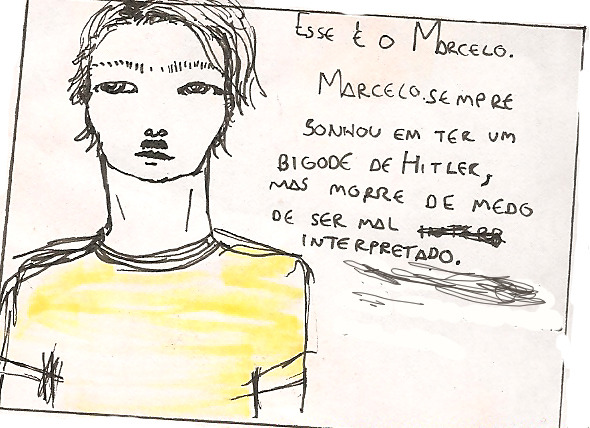 ESSE É O MARCELO.
MARCELO SEMPRE
SONHOU EM TER UM
BIGODE DE HITLER,
MAS MORRE DE MEDO
DE SER MAL
INTERPRETADO.